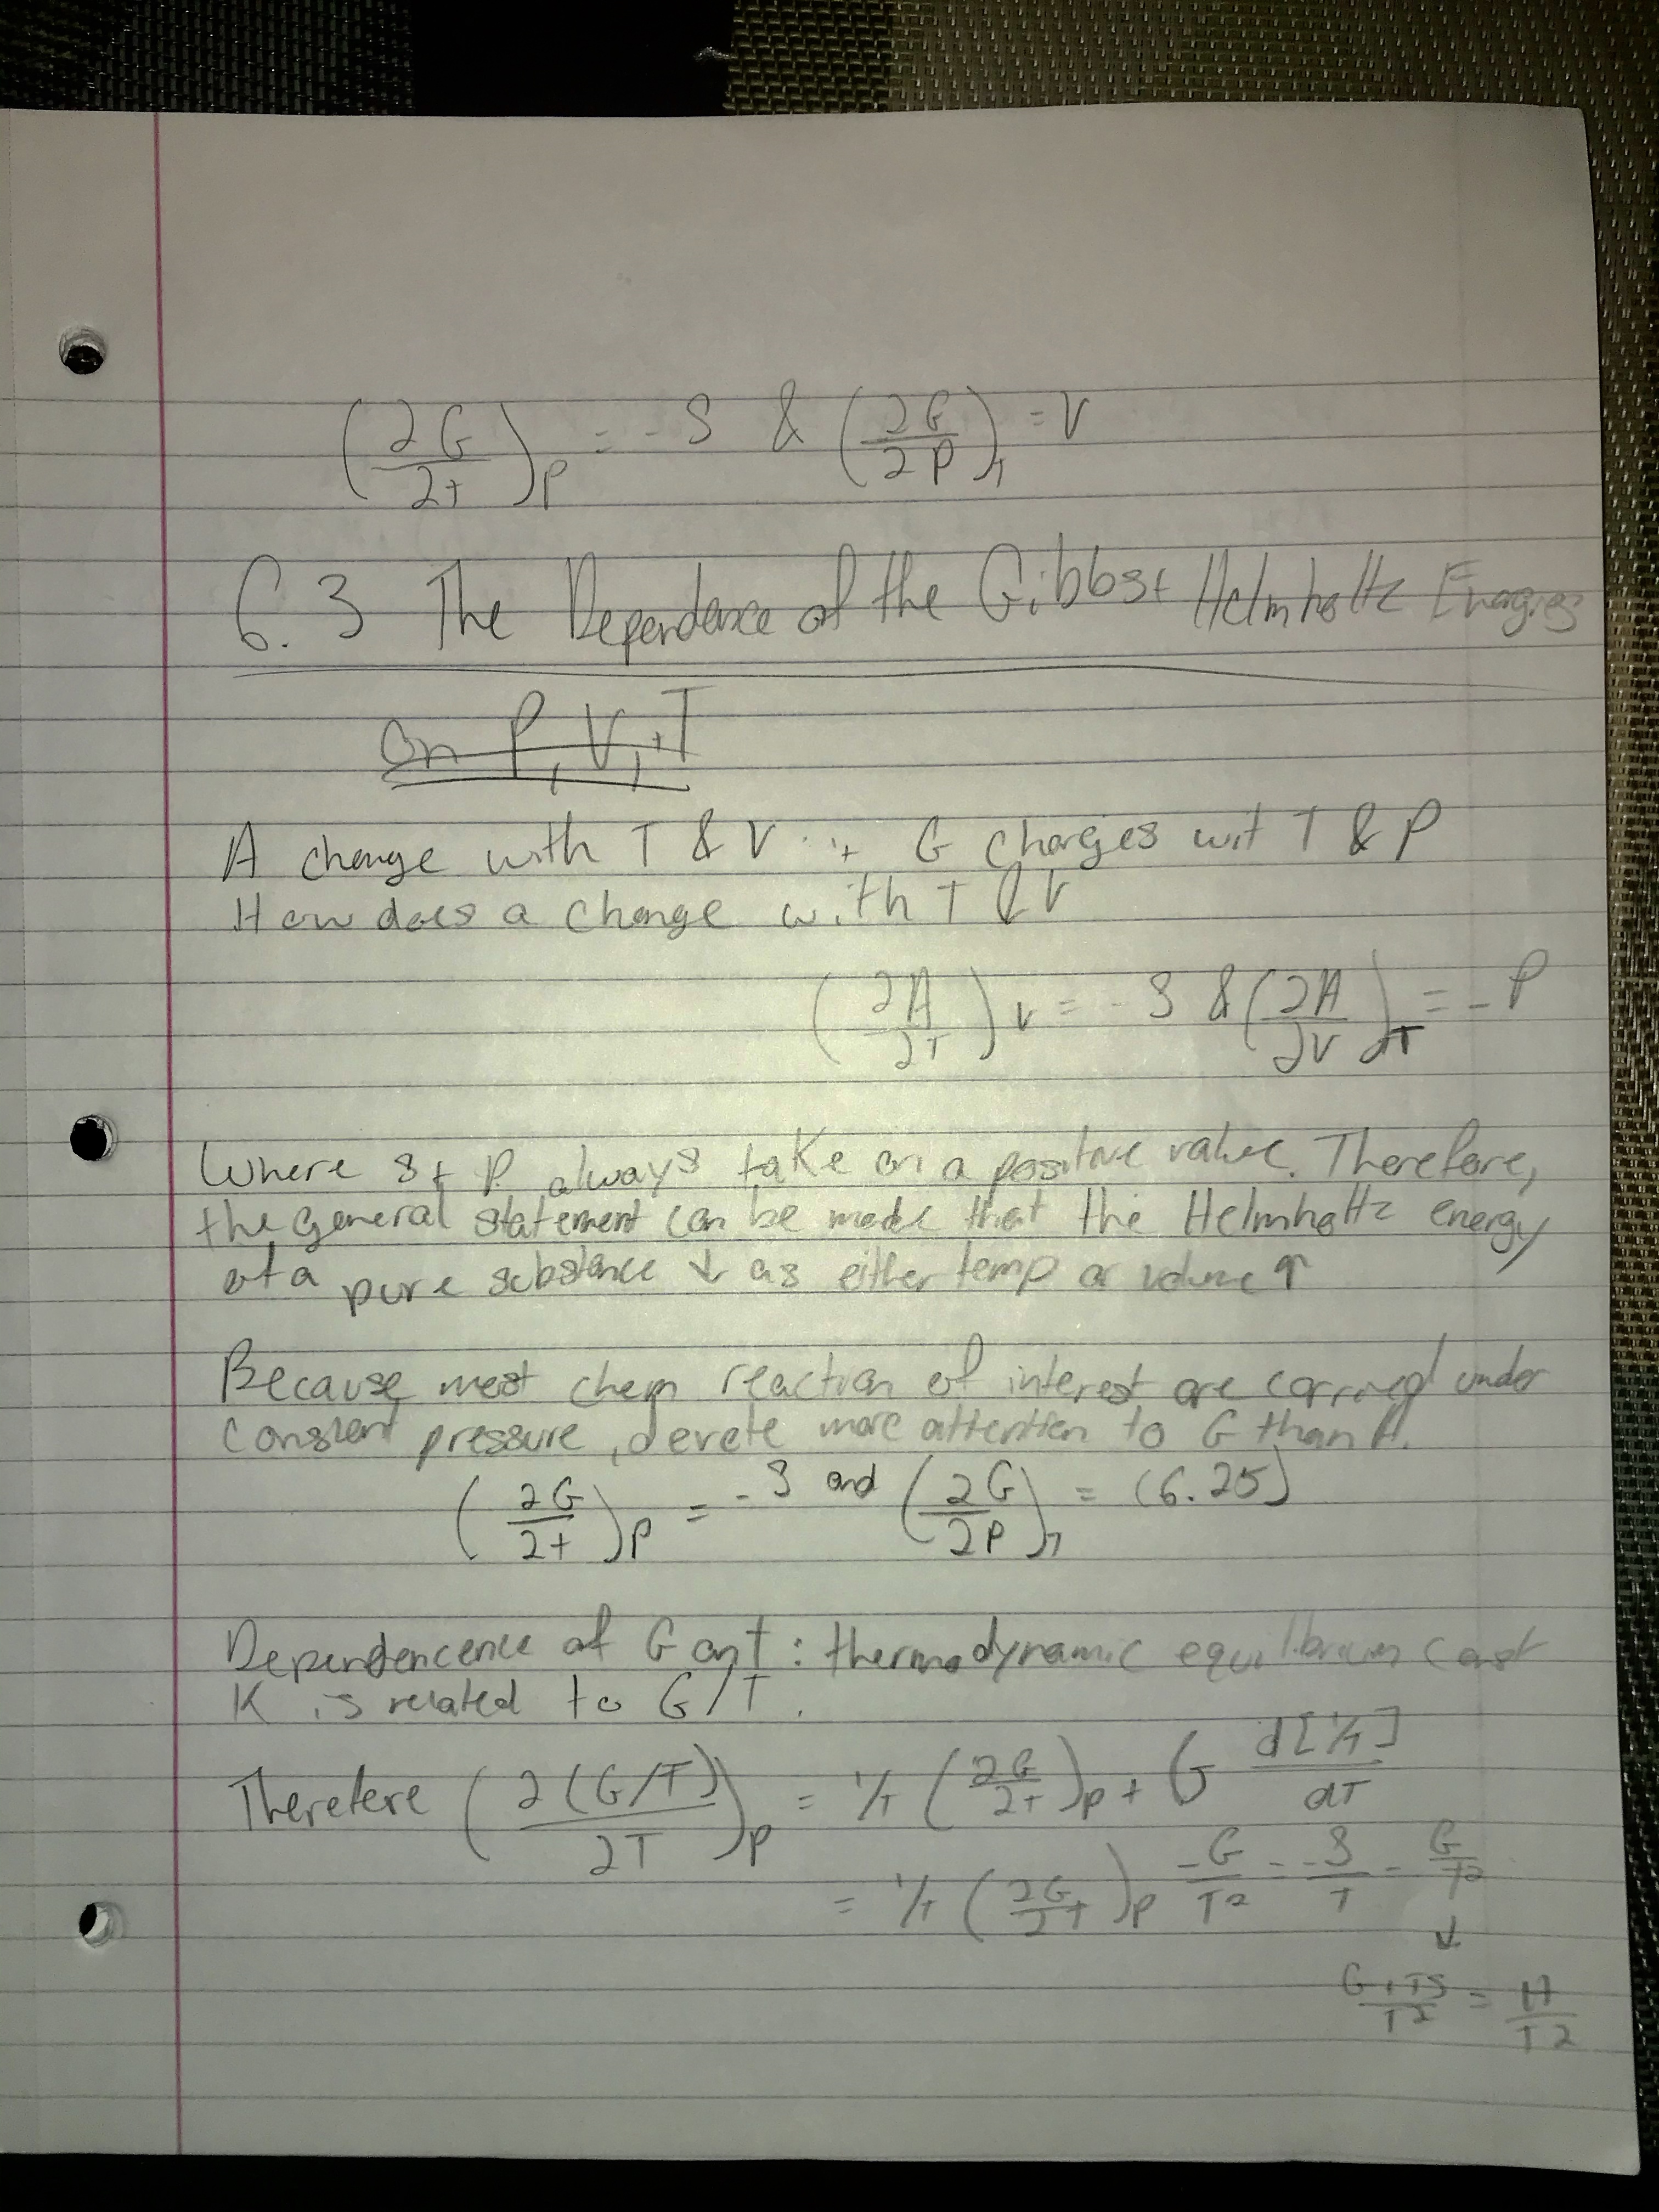 (∂G/∂T)P = -S & (∂G/∂P)T = V
6.3 The Dependence of the Gibbs + Helmholtz Energies
on P, V, + T
A change with T & V + G charges wit T & P
How does a change with T & V
(∂A/∂T)V = -S & (∂A/∂V)T = -P
Where S + P always take on a positive value. Therefore,
the general statement can be made that the Helmholtz energy
of a pure substance ↓ as either temp or volume ↑
Because most chem reaction of interest are carried under
constant pressure, devote more attention to G than A.
(∂G/∂T)P = -S and (∂G/∂P)T = (6.25)
Dependencence of G on T : thermodynamic equilibrium const
K is related to G/T.
Therefore (∂(G/T)/∂T)P = 1/T (∂G/∂T)P + G d[1/T]/dT
= 1/T (∂G/∂T)P -G/T2 = -S/T - G/T2
↓
G+TS/T2 = H/T2